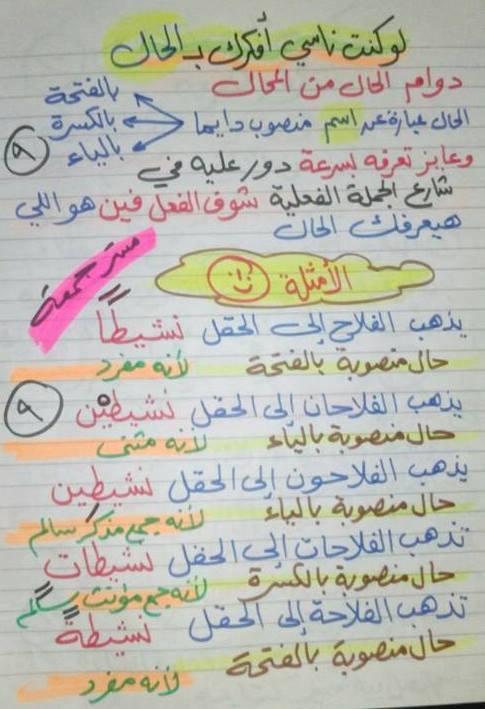 لو كنت ناسي أفكرك بـ الحال
دوام الحال من المحال
الحال عبارة عن اسم منصوب دايما
بالفتحة
بالكسرة
بالياء
٩
وعايز تعرفه بسرعة دور عليه في
شارع الجملة الفعلية شوف الفعل فين هو اللي
هيعرفك الحال
مستر جمعة
الأمثلة
يذهب الفلاح إلى الحقل نشيطاً
حال منصوبة بالفتحة لأنه مفرد
٩
يذهب الفلاحان إلى الحقل نشيطيْن
حال منصوبة بالياء لأنه مثنى
يذهب الفلاحون إلى الحقل نشيطِين
حال منصوبة بالياء لأنه جمع مذكر سالم
تذهب الفلاحات إلى الحقل نشيطاتٍ
حال منصوبة بالكسرة لأنه جمع مؤنث سالم
تذهب الفلاحة إلى الحقل نشيطةً
حال منصوبة بالفتحة
لأنه مفرد